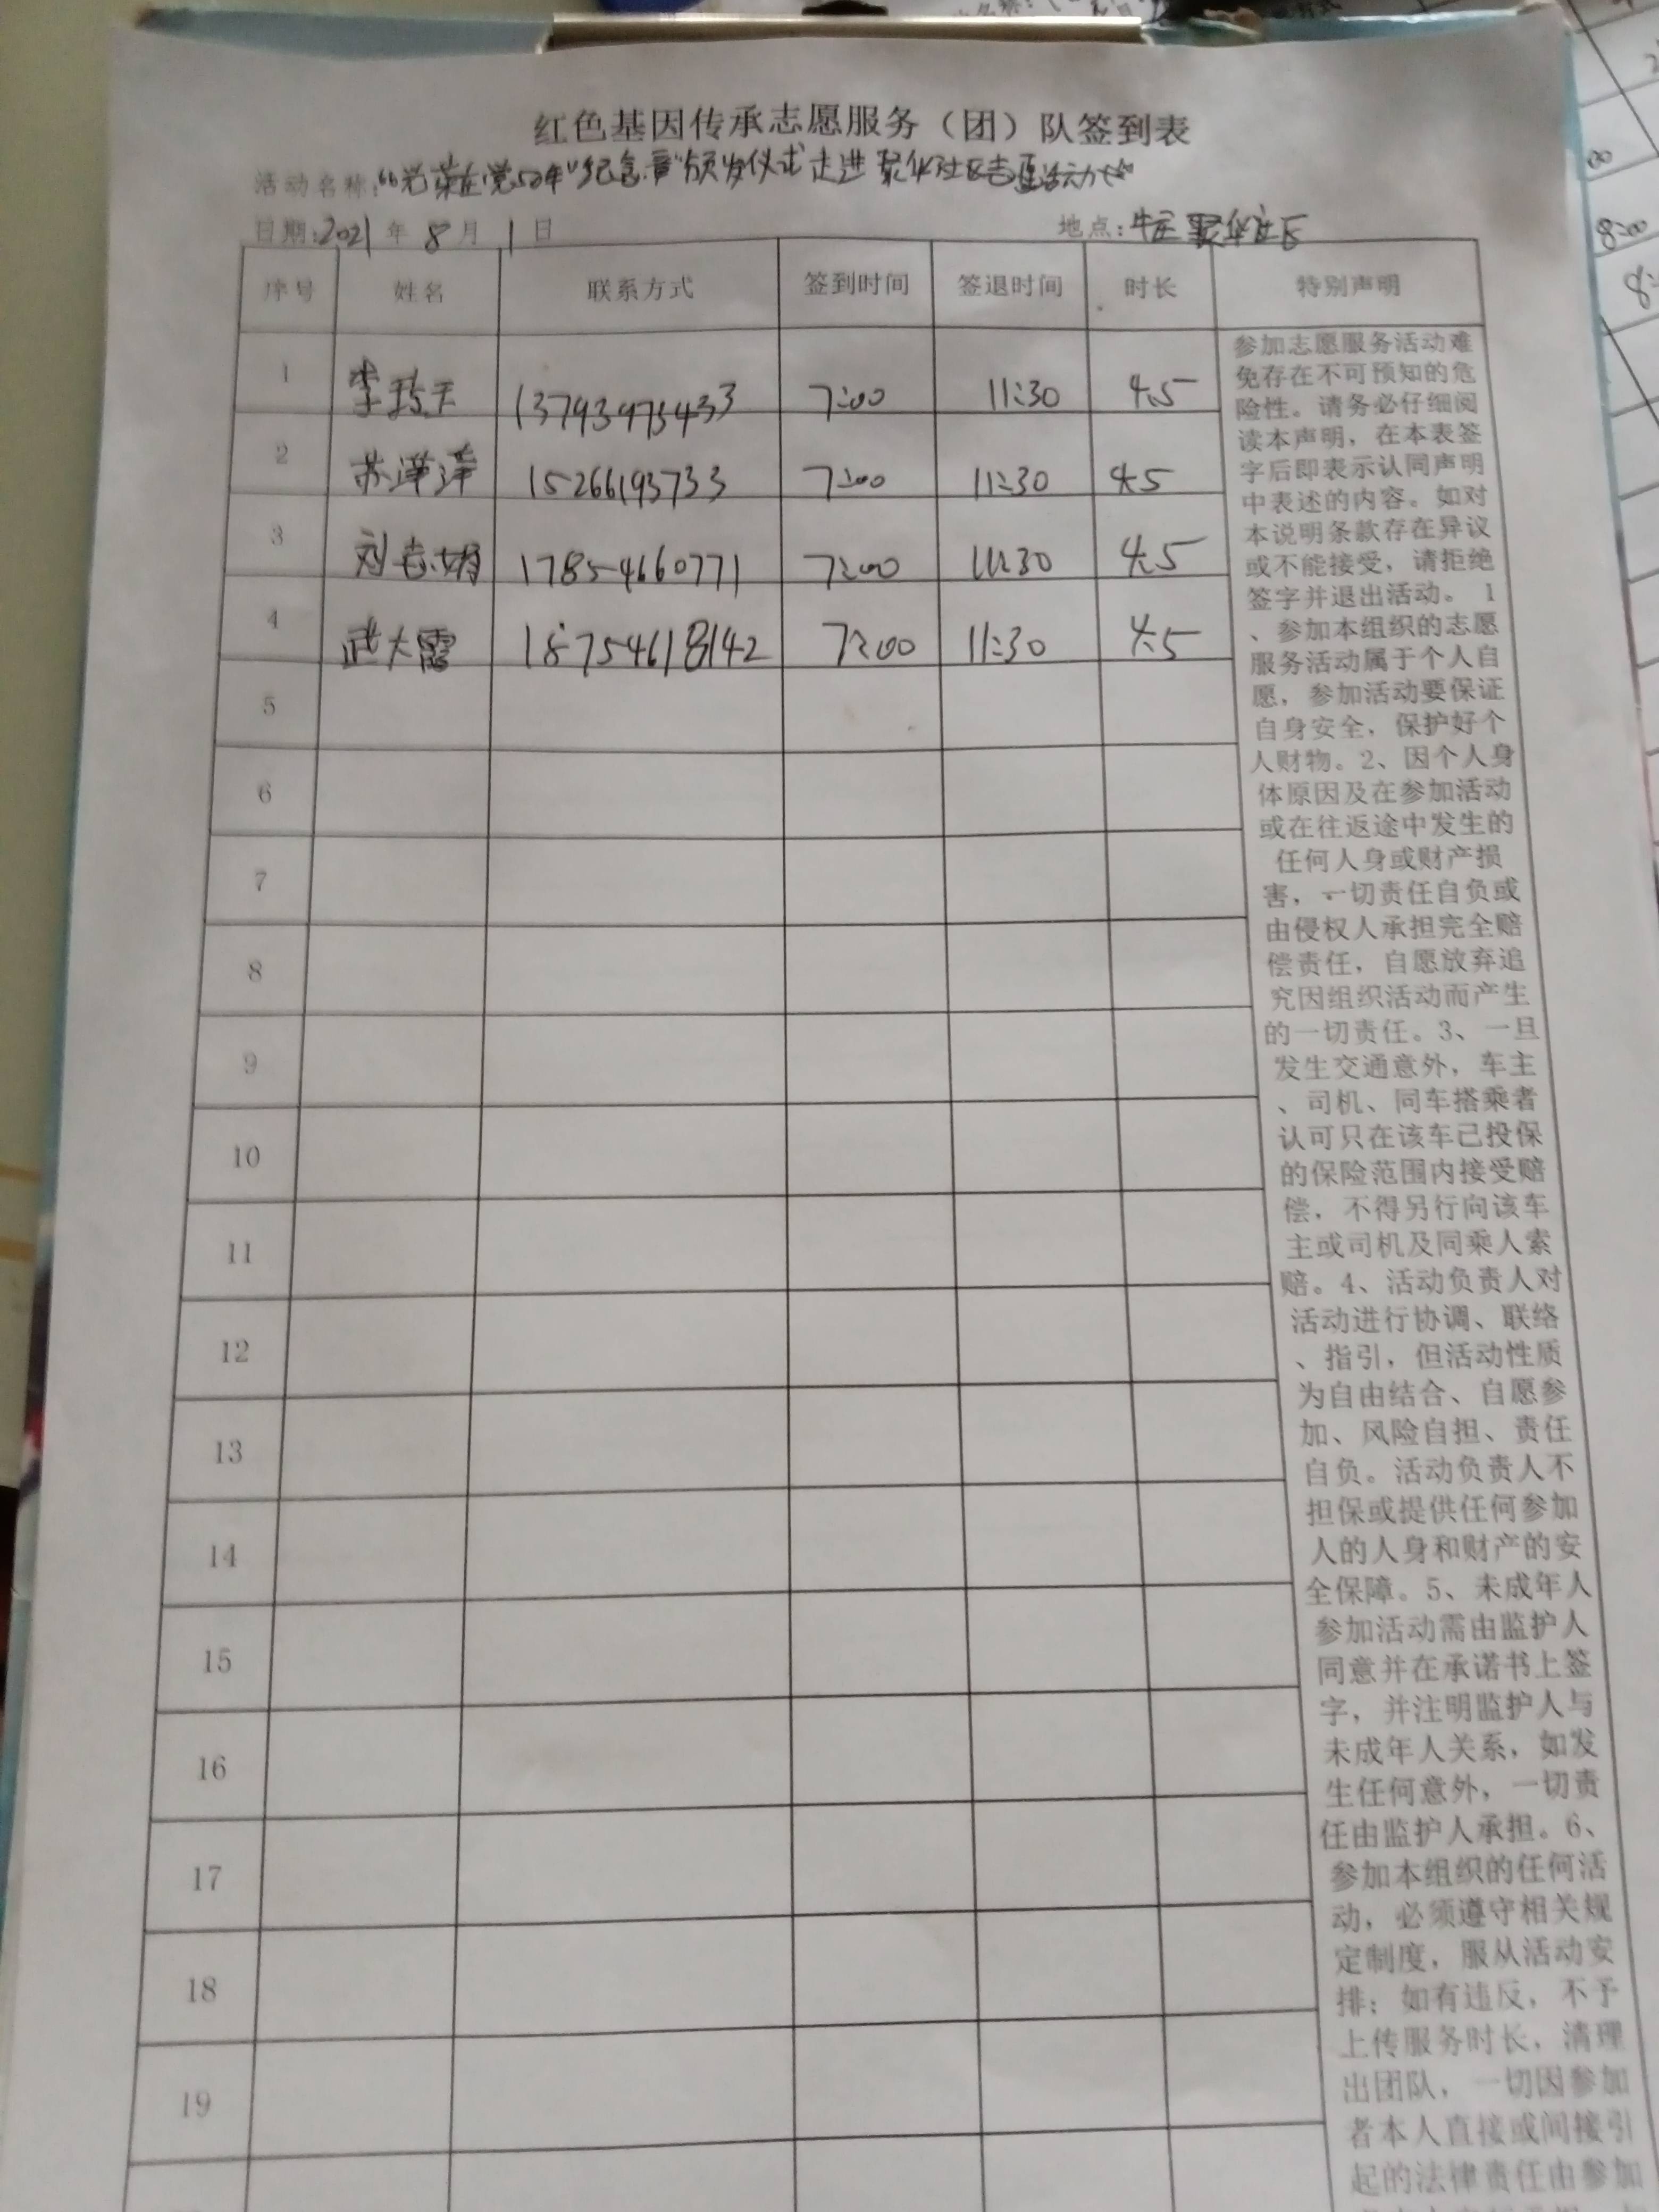 红色基因传承志愿服务（团）队签到表
活动名称："光荣在党50年"纪念章"颁发仪式走进聚华社区志愿活动
日期:2021年8月1日 地点:聚华社区
序号 姓名 联系方式 签到时间 签退时间 时长 特别声明
1 李 13793973433 7:00 11:30 4.5
2 苏洋洋 15266193733 7:00 11:30 4.5
3 刘志娟 17854660771 7:00 11:30 4.5
4 武大霞 18754618142 7:00 11:30 4.5
5
6
7
8
9
10
11
12
13
14
15
16
17
18
19
参加志愿服务活动难
免存在不可预知的危
险性。请务必仔细阅
读本声明，在本表签
字后即表示认同声明
中表述的内容。如对
本说明条款存在异议
或不能接受，请拒绝
签字并退出活动。 1
、参加本组织的志愿
服务活动属于个人自
愿，参加活动要保证
自身安全，保护好个
人财物。2、因个人身
体原因及在参加活动
或在往返途中发生的
任何人身或财产损
害，一切责任自负或
由侵权人承担完全赔
偿责任，自愿放弃追
究因组织活动而产生
的一切责任。3、一旦
发生交通意外，车主
、司机、同车搭乘者
认可只在该车已投保
的保险范围内接受赔
偿，不得另行向该车
主或司机及同乘人索
赔。4、活动负责人对
活动进行协调、联络
、指引，但活动性质
为自由结合、自愿参
加、风险自担、责任
自负。活动负责人不
担保或提供任何参加
人的人身和财产的安
全保障。5、未成年人
参加活动需由监护人
同意并在承诺书上签
字，并注明监护人与
未成年人关系，如发
生任何意外，一切责
任由监护人承担。6、
参加本组织的任何活
动，必须遵守相关规
定制度，服从活动安
排；如有违反，不予
上传服务时长，清理
出团队，一切因参加
者本人直接或间接引
起的法律责任由参加
8:00